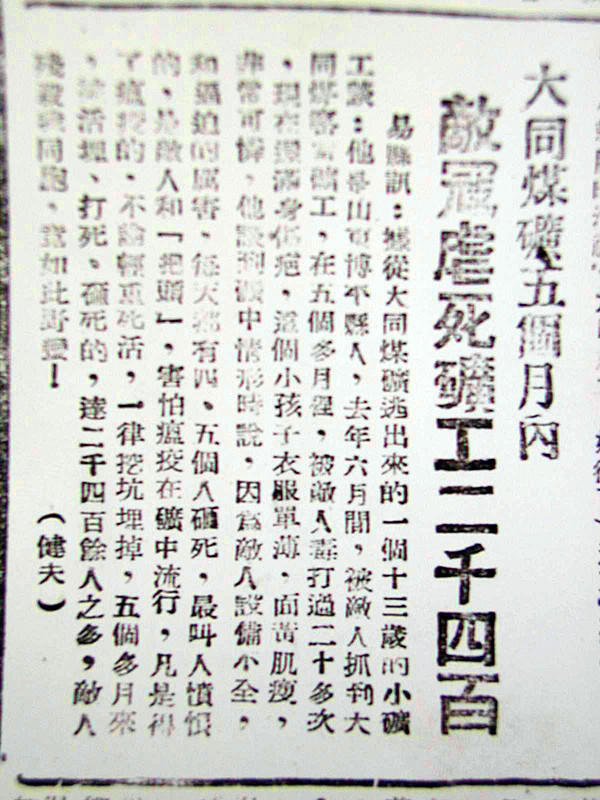 大同煤礦五個月內
敵冦虐死礦工二千四百
易縣訊：據從大同煤礦逃出來的一個十三歲的小礦
工談：他是山東博平縣人，去年六月間，被敵人抓到大
同煤窰當礦工，在五個多月裡，被敵人毒打過二十多次
，現在還滿身傷疤，這個小孩子衣服單薄，面黃肌瘦，
非常可憐，他談到礦中情形時說，因爲敵人設備不全，
和逼迫的厲害，每天都有四、五個人砸死，最叫人憤恨
的、是敵人和「把頭」，害怕瘟疫在礦中流行，凡是得
了瘟疫的，不論輕重死活，一律挖坑埋掉，五個多月來
，被活埋、打死、砸死的，達二千四百餘人之多，敵人
殘殺我同胞，竟如此野蠻！
（健夫）